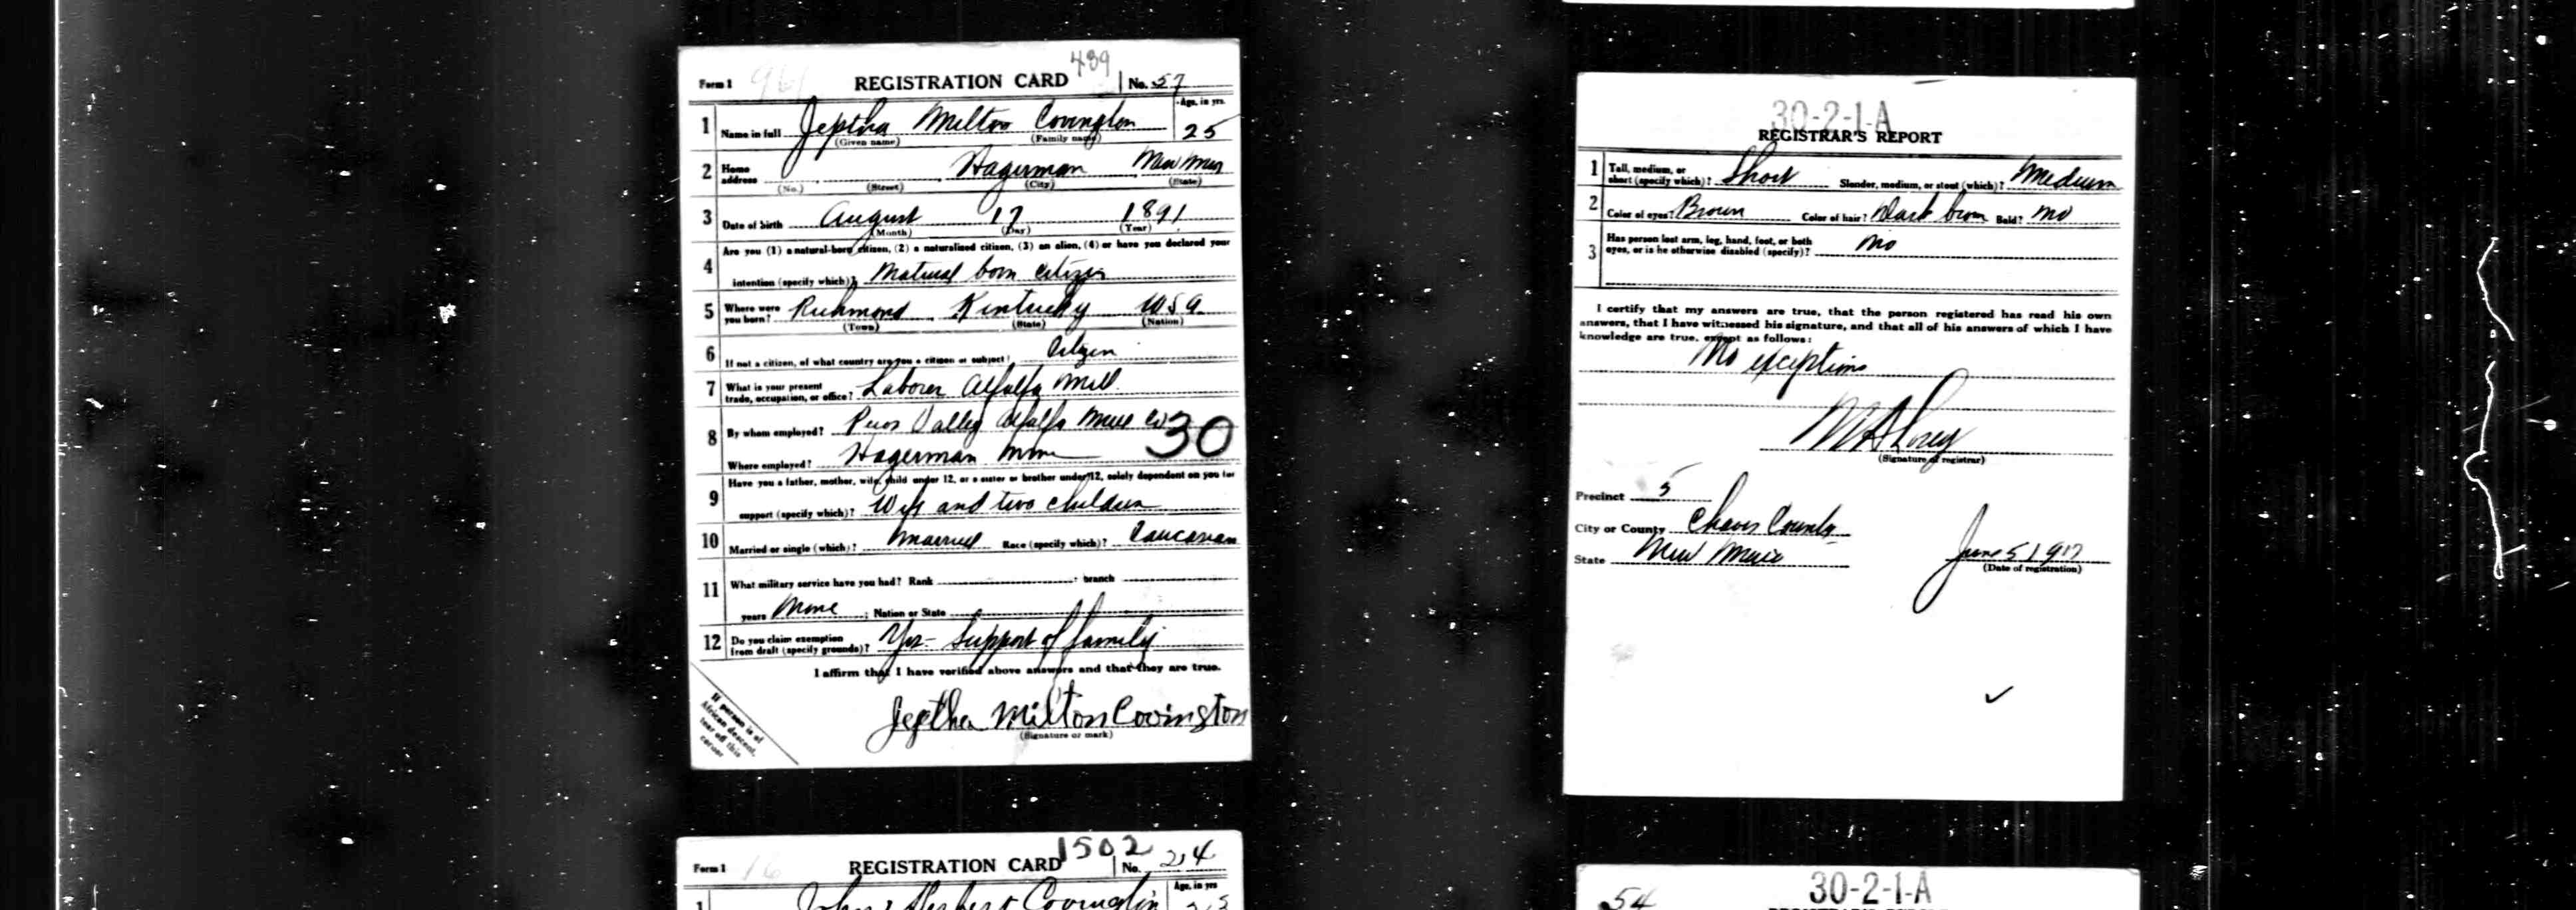 Form 1 961 REGISTRATION CARD 439 No. 57
1 Name in full Jeptha Milton Covington Age, in yrs. 25
(Given name) (Family name)
2 Home address Hagerman New Mex
(No.) (Street) (City) (State)
3 Date of birth August 17 1891
(Month) (Day) (Year)
4 Are you (1) a natural-born citizen, (2) a naturalized citizen, (3) an alien, (4) or have you declared your
intention (specify which)? Natural born citizen
5 Where were you born? Richmond Kentucky USA
(Town) (State) (Nation)
6 If not a citizen, of what country are you a citizen or subject? Citizen
7 What is your present trade, occupation, or office? Laborer Alfalfa Mill
8 By whom employed? Pecos Valley Alfalfa Mill Co
30
Where employed? Hagerman
9 Have you a father, mother, wife, child under 12, or a sister or brother under 12, solely dependent on you for
support (specify which)? Wife and two children
10 Married or single (which)? Married Race (specify which)? Caucasian
11 What military service have you had? Rank ; branch
years None ; Nation or State
12 Do you claim exemption from draft (specify grounds)? Yes - Support of family
I affirm that I have verified above answers and that they are true.
Jeptha Milton Covington
(Signature or mark)
If person is of
African descent,
tear off this
corner
30-2-1-A
REGISTRAR'S REPORT
1 Tall, medium, or short (specify which)? Short Slender, medium, or stout (which)? Medium
2 Color of eyes? Brown Color of hair? Dark brown Bald? No
3 Has person lost arm, leg, hand, foot, or both eyes, or is he otherwise disabled (specify)? No
I certify that my answers are true, that the person registered has read his own
answers, that I have witnessed his signature, and that all of his answers of which I have
knowledge are true, except as follows:
No exceptions
(Signature of registrar)
Precinct 5
City or County Chaves County
State New Mexico June 5 1917
(Date of registration)
Form 1 16 REGISTRATION CARD 1502 No. 24
1 John Herbert Covington Age, in yrs
54 30-2-1-A
REGISTRAR'S REPORT